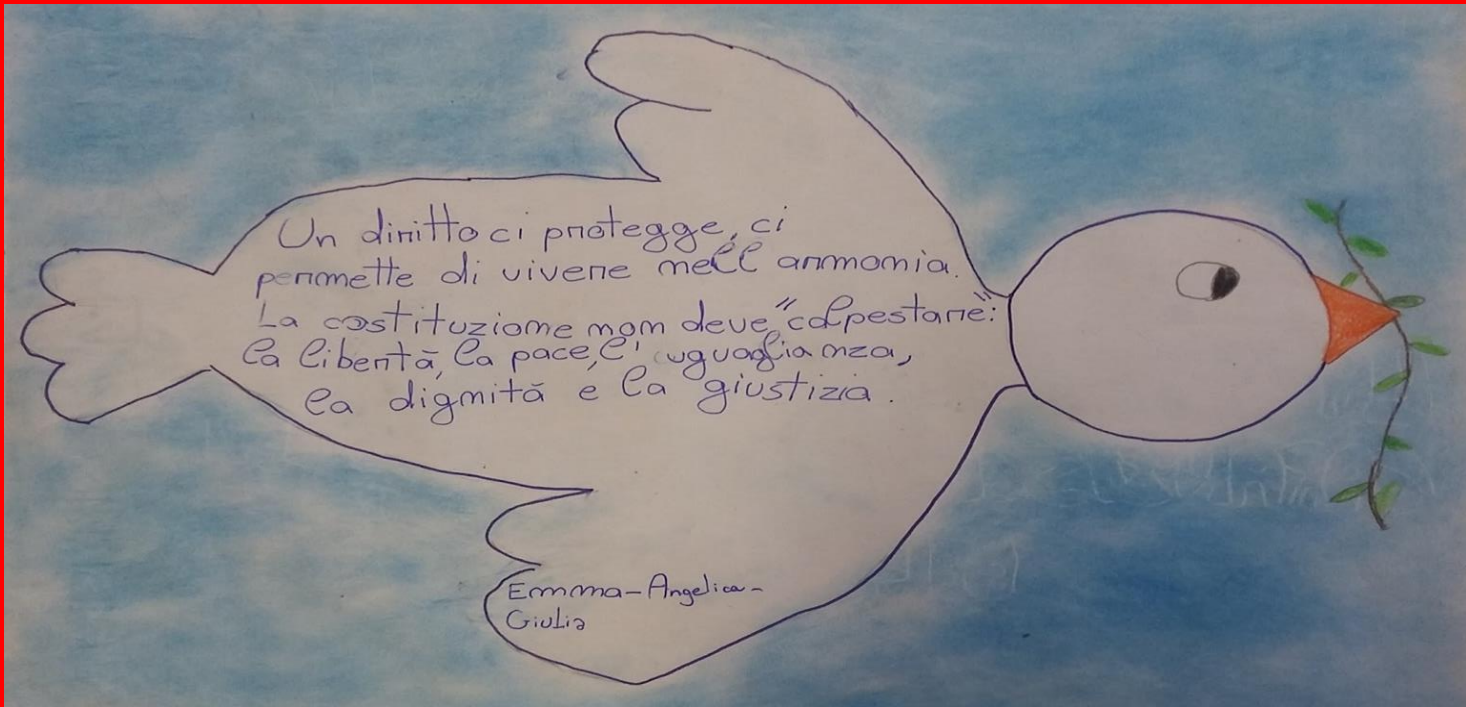 Un diritto ci protegge, ci
permette di vivere nell'armonia.
La costituzione non deve "calpestare":
la libertà, la pace, l'uguaglianza,
la dignità e la giustizia.
Emma-Angelica-
Giulia